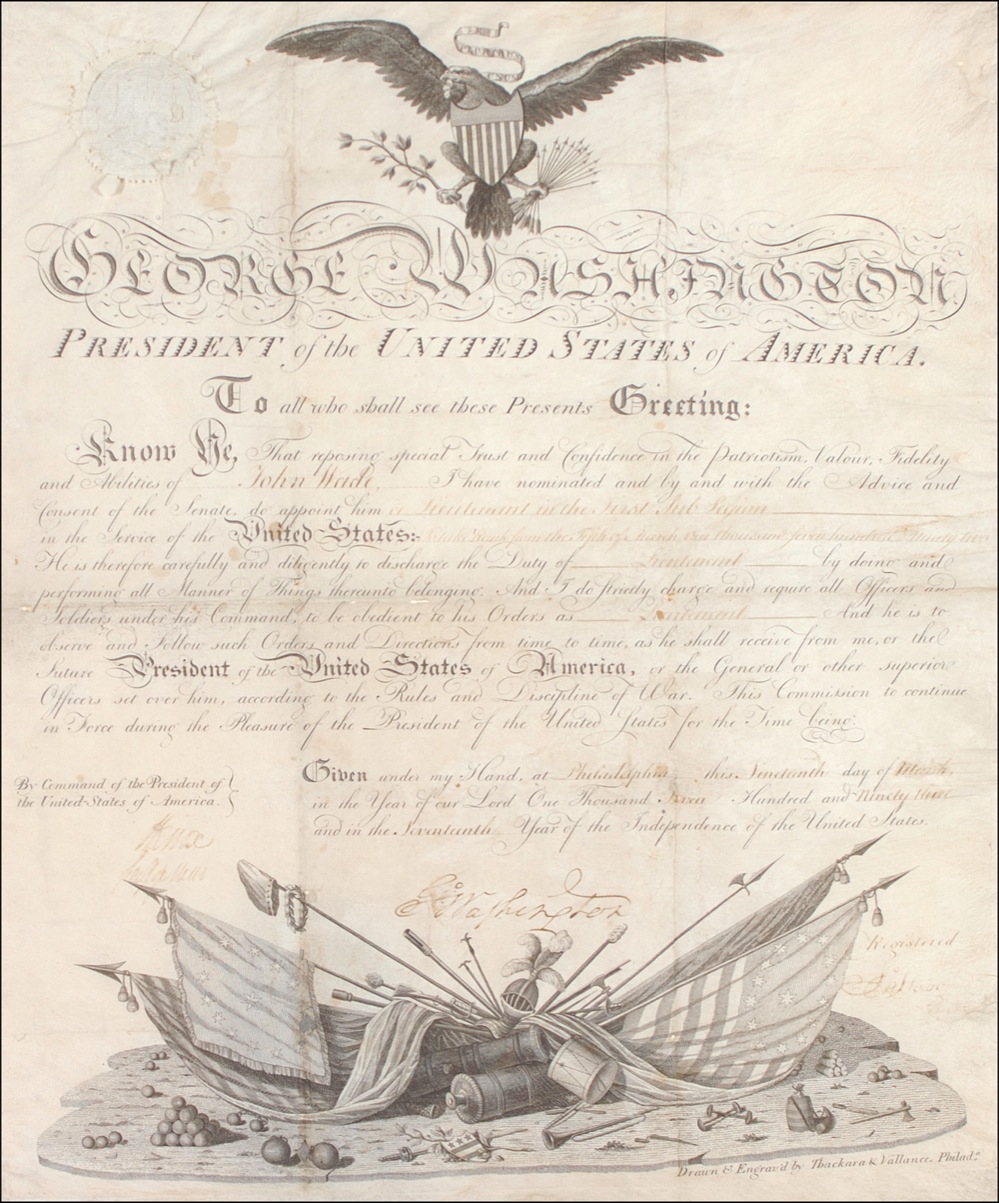 GEORGE WASHINGTON
PRESIDENT of the UNITED STATES of AMERICA.
To all who shall see these Presents Greeting:
Know Ye, That reposing special Trust and Confidence in the Patriotism, Valour, Fidelity
and Abilities of John Wade, I have nominated and by and with the Advice and
Consent of the Senate, do appoint him a Lieutenant in the First Sub Legion
in the Service of the United States: to take Rank from the of March, One thousand seven hundred Ninety two
He is therefore carefully and diligently to discharge the Duty of Lieutenant by doing and
performing all Manner of Things thereunto belonging. And I do strictly charge and require all Officers and
Soldiers under his Command, to be obedient to his Orders as Lieutenant And he is to
observe and Follow such Orders and Directions from time to time, as he shall receive from me, or the
future President of the United States of America, or the General or other superior
Officers set over him, according to the Rules and Discipline of War. This Commission to continue
in Force during the Pleasure of the President of the United States for the Time being.
Given under my Hand, at Philadelphia this Nineteenth day of March,
in the Year of our Lord One Thousand Seven Hundred and Ninety three
and in the Seventeenth Year of the Independence of the United States.
By Command of the President of
the United States of America.
HKnox
Go Washington
Registered
Drawn & Engrav'd by Thackara & Vallance. Philad.ª